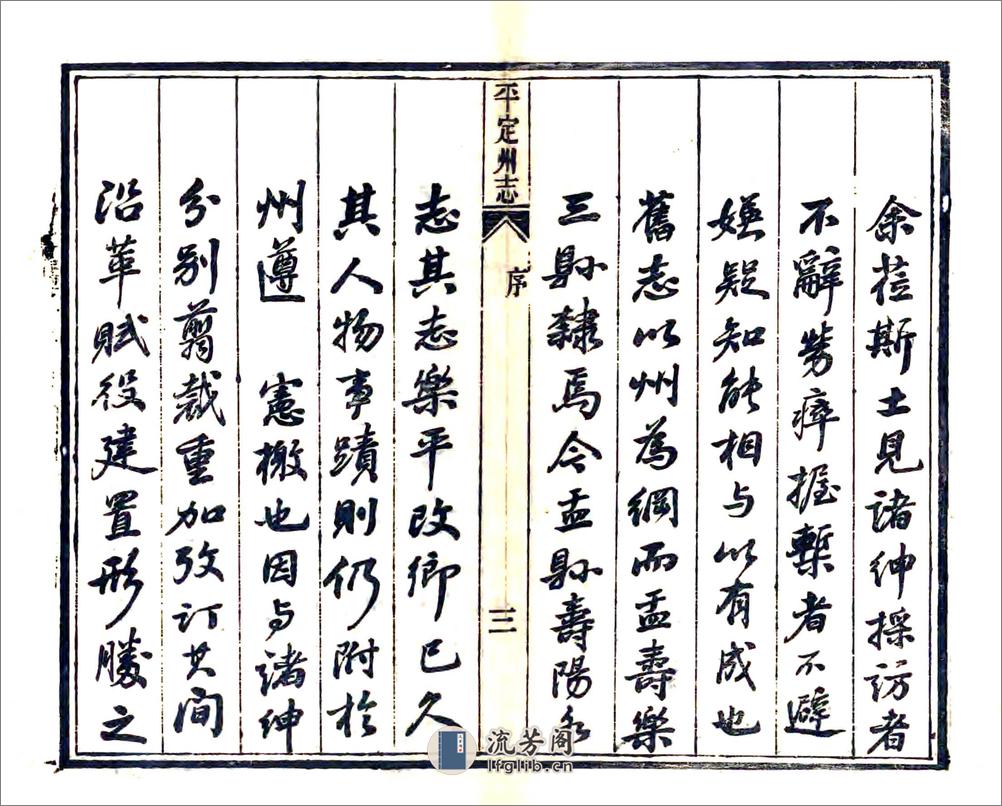 余莅斯土見諸紳採訪者
不辭勞瘁握槧者不避
嫌疑知能相与以有成也
舊志以州為綱而盂壽樂
三縣隸焉今盂縣壽陽各
平定州志
序
三
志其志樂平改鄉已久
其人物事蹟則仍附於
州遵 憲檄也因与諸紳
分別剪裁重加攷訂其间
沿革賦役建置形勝之
流芳阁
lfglib.cn